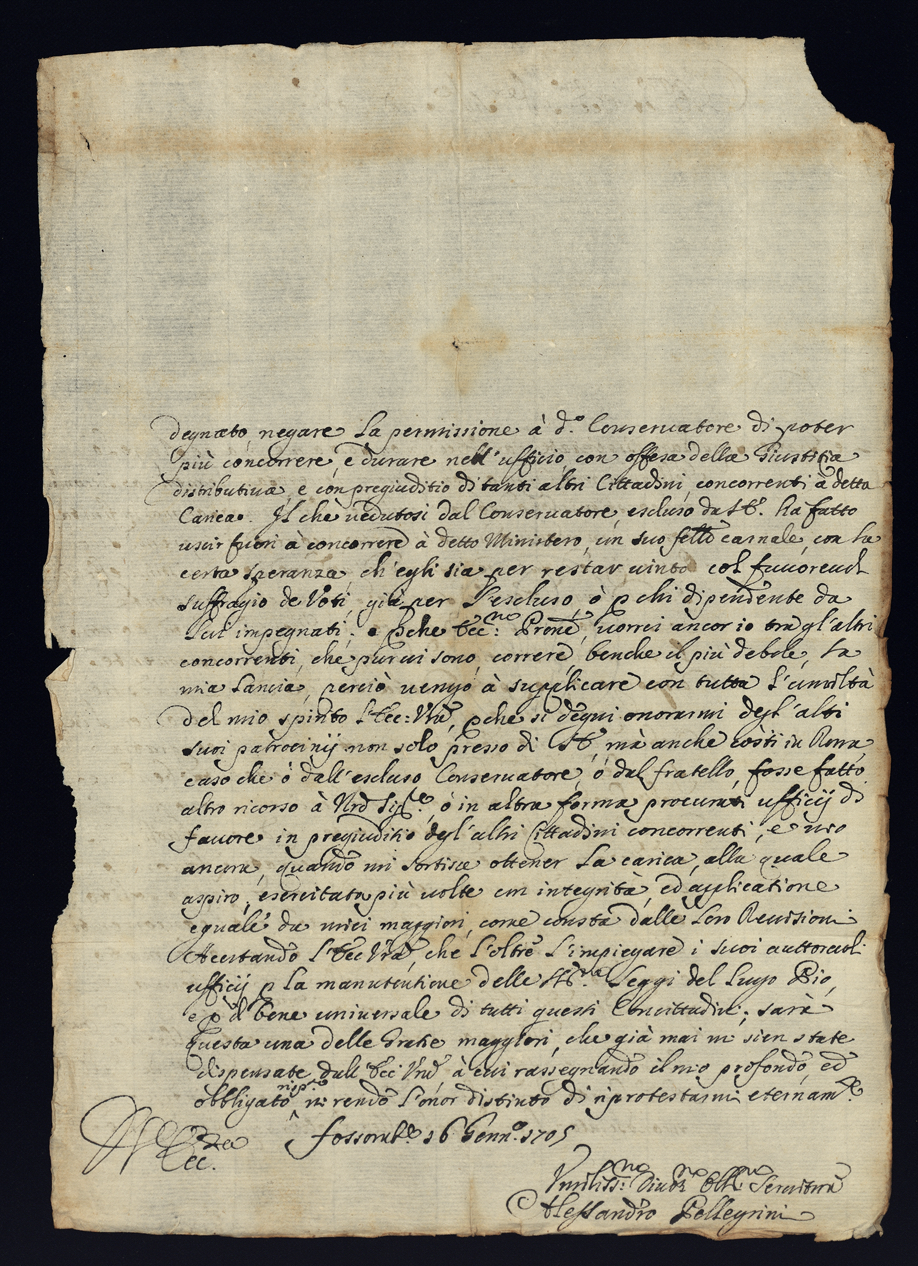 degnato, negare la permissione à d.º Conservatore di poter
più concorrere, è durare nell'ufficio con offesa della Giustitia
distributiva, e con pregiuditio di tanti altri Cittadini, concorrenti à detta
Carica. Il che vedutosi dal Conservatore, escluso da
uscir fuori à concorrere à detto Ministero, un suo fello carnale, con la
certa speranza, ch'egli sia per restar vinto col favorevol
suffragio de Voti già per l'escluso, ò p chi dipendente da
impegnati; e pche Ecc:mo Prone, vorrei ancor io tra gl'altri
concorrenti, che pur vi sono, correre, benche il più debole, la
mia Lancia, perciò vengo à supplicare con tutta l'umiltà
del mio spirito l'Ecc: Vrã, pche si degni onorarmi degl'alti
suoi patrocinij non solo presso di mà anche costì in Roma
caso che ò dall'escluso Conservatore, ò dal fratello, fosse fatto
altro ricorso à ò in altra forma procurati ufficij di
favore in pregiuditio degl'altri Cittadini concorrenti, e mio
ancora, quando mi sortisce ottener la carica, alla quale
aspiro, esercitata più volte con integrità, ed applicatione
eguale da miei maggiori, come consta dalle loro Revisioni
Accertando l'Ecc Vrã, che l'oltre l'impiegare i suoi auttorevoli
ufficij p la manutentione delle Leggi del Luogo Pio,
e p il bene universale di tutti questi Concittadini; sarà
questa una delle Gratie maggiori, che già mai mi sien state
dispensate dall'Ecc Vrã à cui rassegnando il mio profondo, ed
obbligato risp.º mi rendo l'onor distinto di riprotestarmi eternam.te
Fossomb.e 16 Genn.º 1705
Umiliss:mo Obbl:mo Servitore
Alessandro Pellegrini